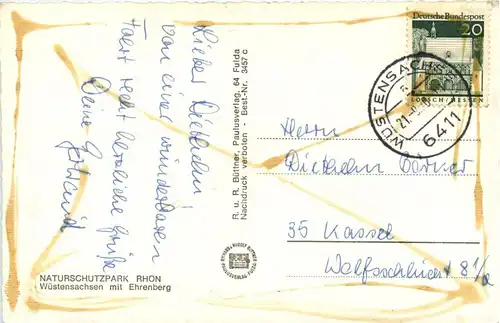 Lieber Diethelm!
von einer wunderbaren
Fahrt recht herzliche Grüße
Deine
NATURSCHUTZPARK RHÖN
Wüstensachsen mit Ehrenberg
R. u. R. Büttner, Paulusverlag, 64 Fulda
Nachdruck verboten - Best.-Nr. 3457 c
Deutsche Bundespost
20
LORSCH/HESSEN
WÜSTENSACHSEN
6411
Herrn
Diethelm Börner
35 Kassel
Wolfsschlucht 8 1/2